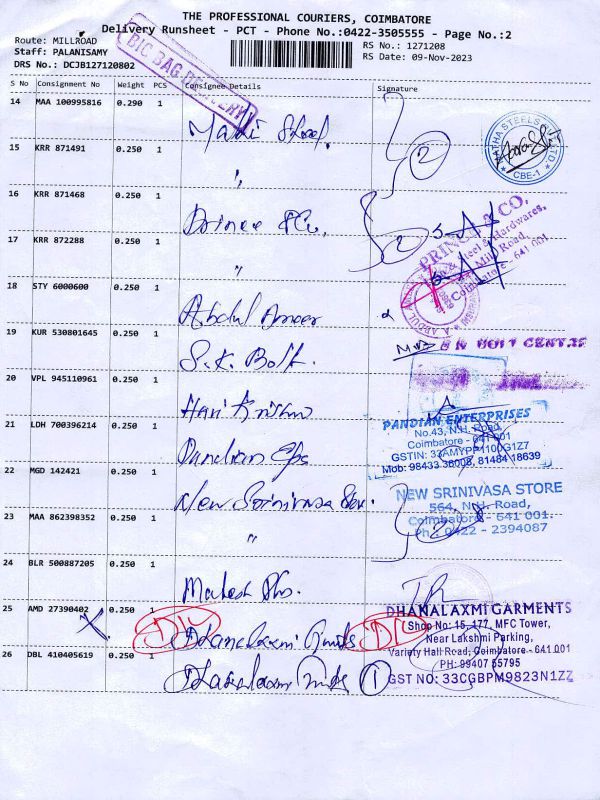 THE PROFESSIONAL COURIERS, COIMBATORE
Delivery Runsheet - PCT - Phone No.:0422-3505555 - Page No.:2
Route: MILLROAD
RS No.: 1271208
Staff: PALANISAMY
RS Date: 09-Nov-2023
DRS No.: DCJB127120802
BIG BAG DELIVERY
S No Consignment No Weight PCS Consignee Details Signature
14 MAA 100995816 0.290 1
STEELS
CBE-1
15 KRR 871491 0.250 1 "
2
16 KRR 871468 0.250 1 Prince &Co.
2
PRINCE & CO,
Steel & Hardwares,
Mill Road,
Coimbatore - 641 001
17 KRR 872288 0.250 1 "
18 STY 6000600 0.250 1 Abdul Ameer
19 KUR 530801645 0.250 1 S.K. Bolt.
20 VPL 945110961 0.250 1 Hari Krishna
PANDIAN ENTERPRISES
No.43, N.H. Road,
Coimbatore - 641 001
GSTIN: 33AMYPP1100G1Z7
Mob: 98433 36008, 81484 18639
21 LDH 700396214 0.250 1 Pandian Eps
22 MGD 142421 0.250 1 New Srinivasa Stor.
NEW SRINIVASA STORE
564, N.H. Road,
Coimbatore - 641 001.
Ph : 0422 - 2394087
23 MAA 862398352 0.250 1 "
2
24 BLR 500887205 0.250 1 Mahesh
25 AMD 27390402 0.250 1 D/L Dhanalaxmi Gmts D/L
DHANALAXMI GARMENTS
Shop No: 15, 177, MFC Tower,
Near Lakshmi Parking,
Variety Hall Road, Coimbatore - 641 001
PH: 99407 55795
GST NO: 33CGBPM9823N1ZZ
26 DBL 410405619 0.250 1 Dhanalaxmi Gmts 1